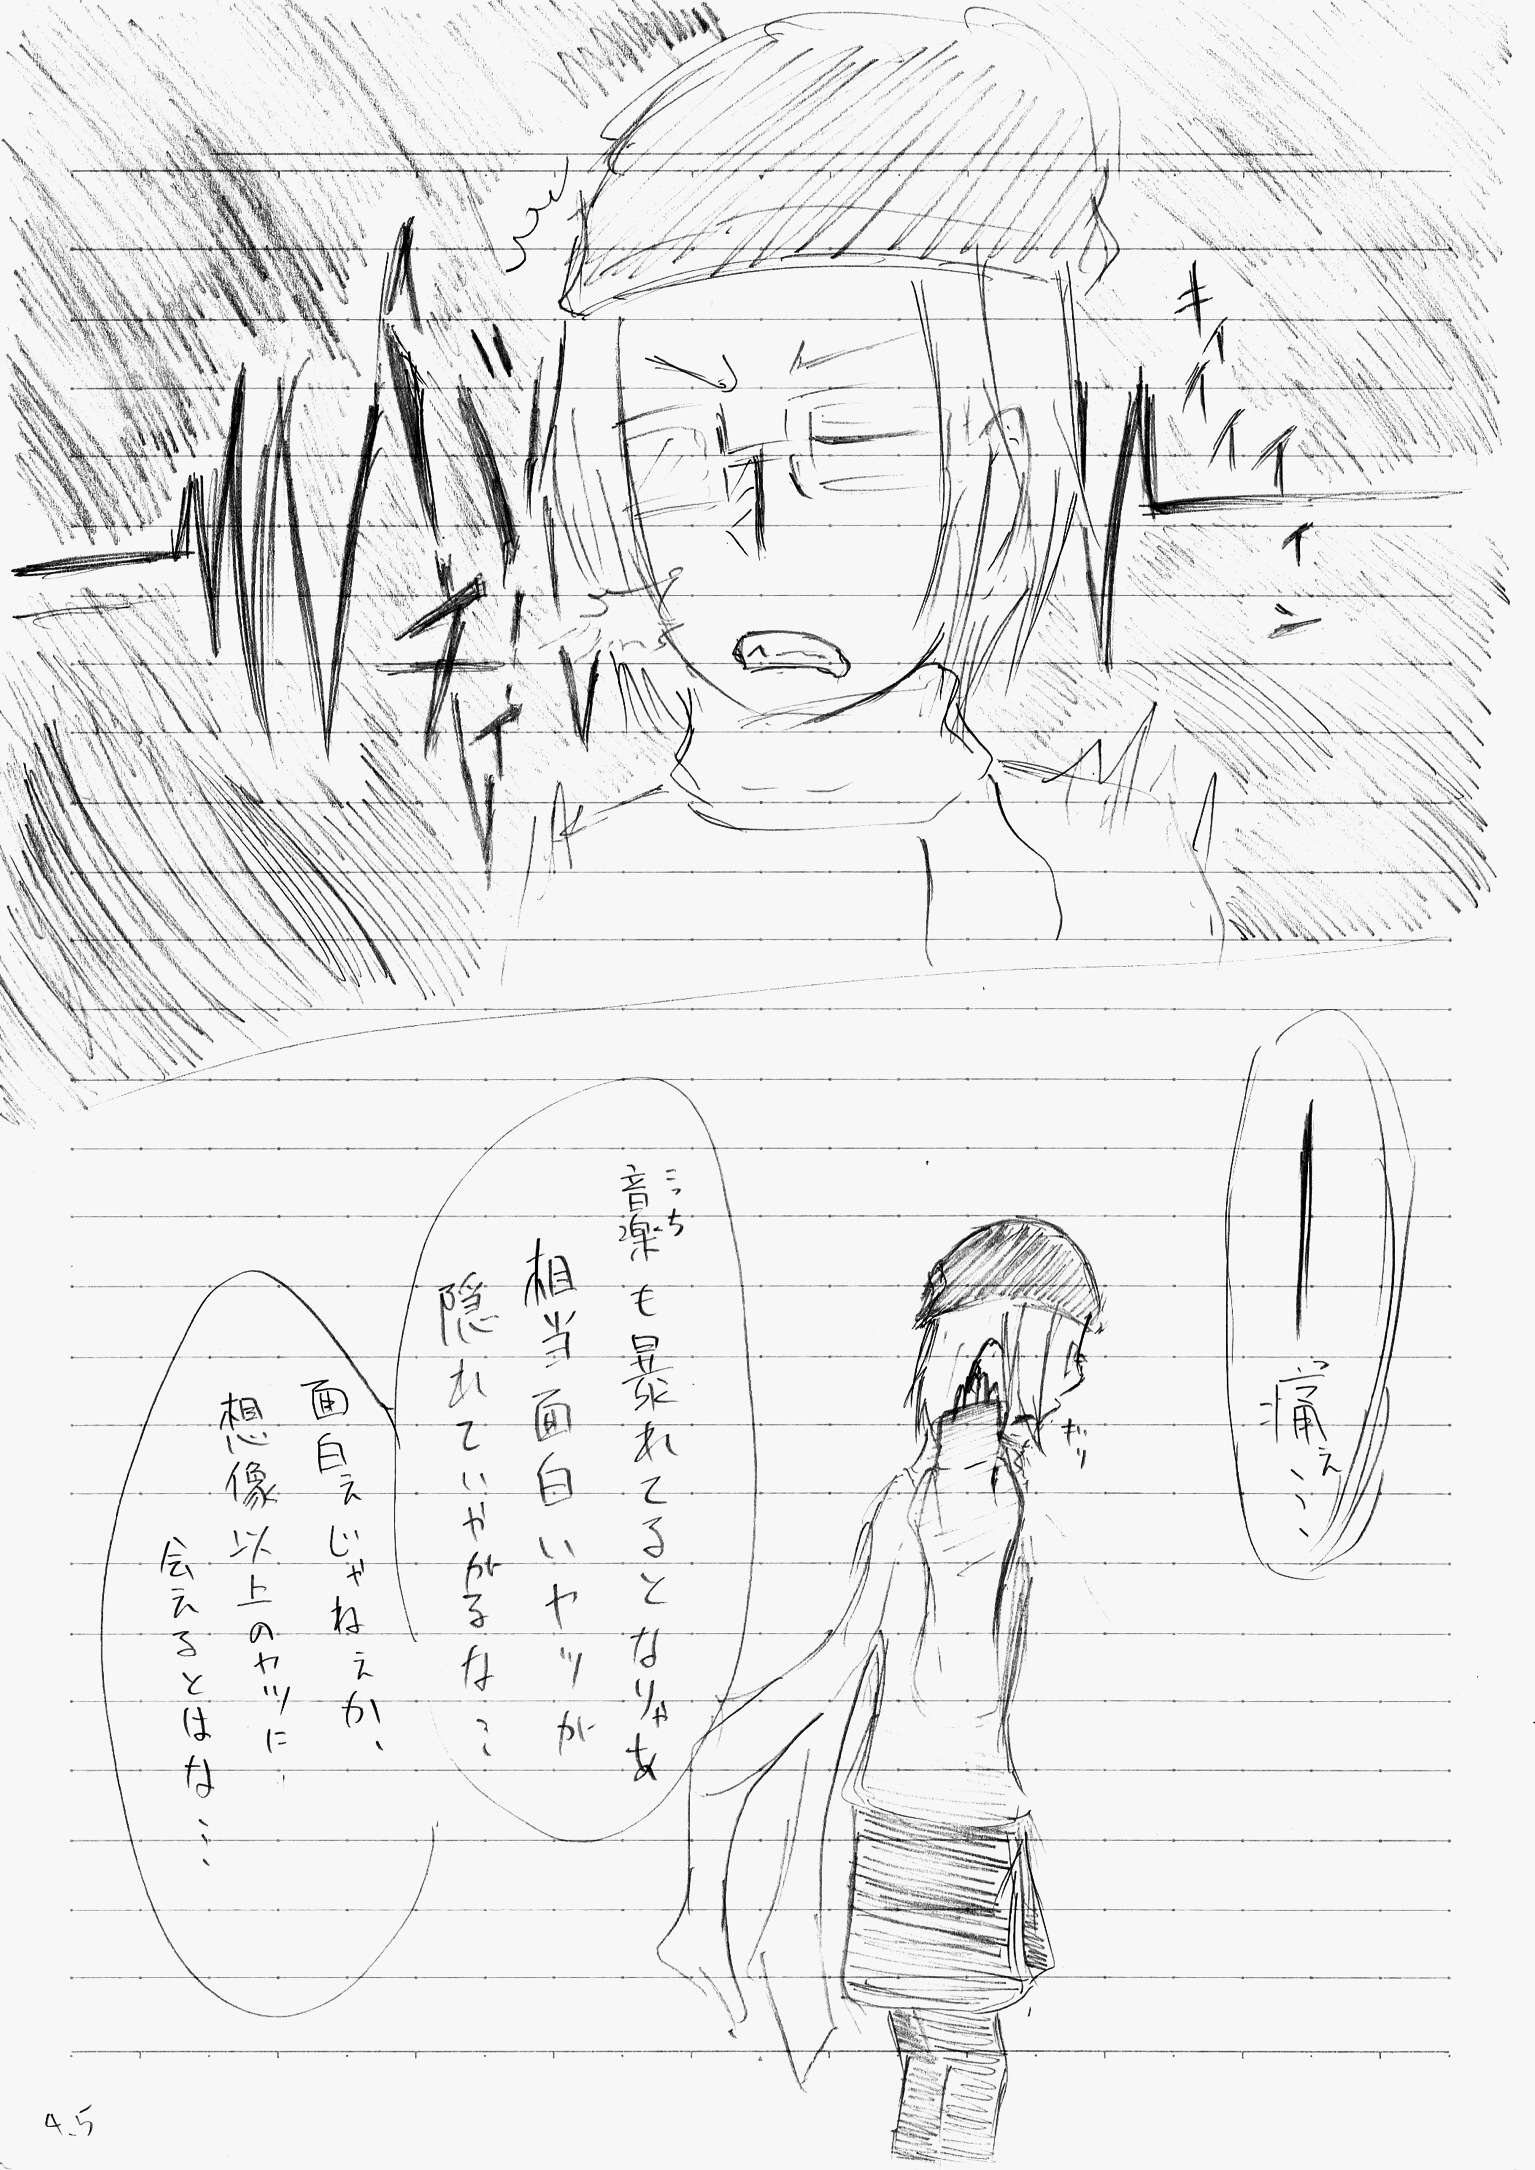 キィィィィィン
ギィィ
痛ぇ…
ギリ
音楽も暴れてるとなりゃあ
こっち
相当面白いヤツが
隠れていやがるな…
面白ぇじゃねぇか、
想像以上のヤツに
会えるとはな…
4.5